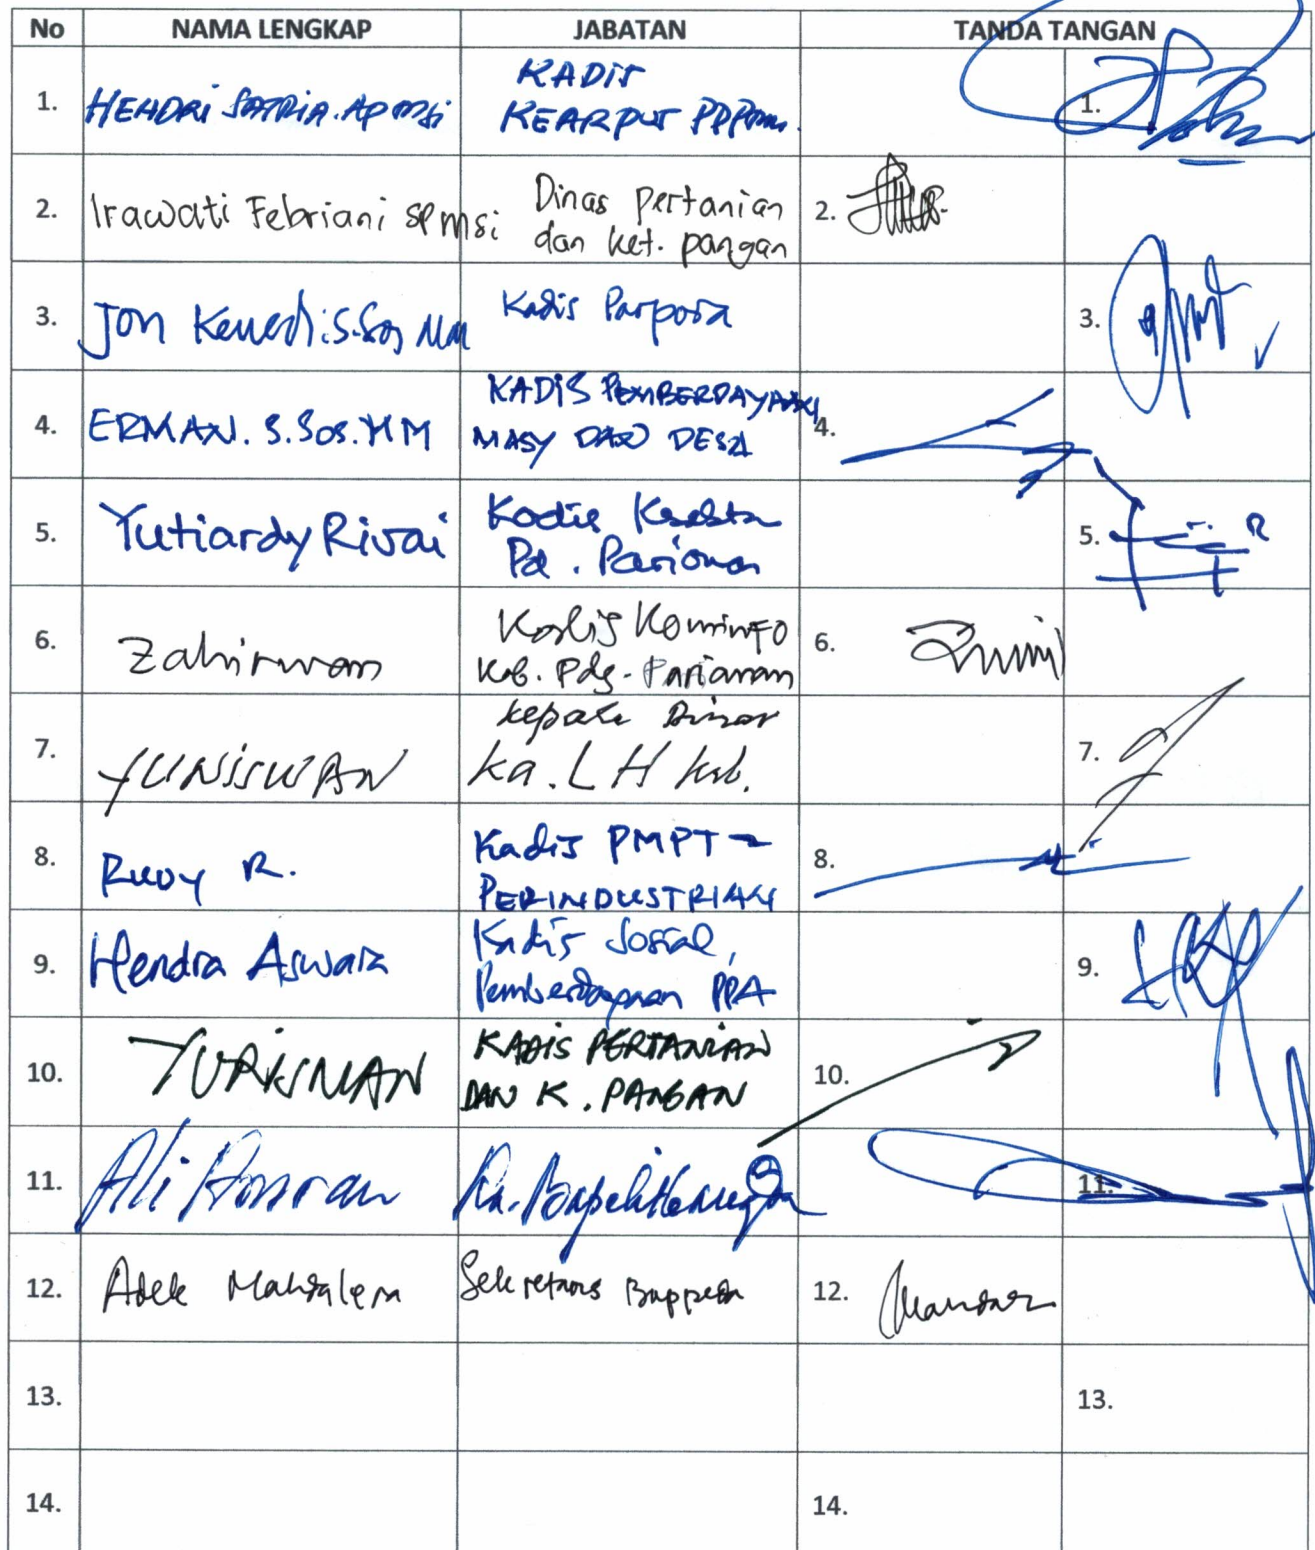 No NAMA LENGKAP JABATAN TANDA TANGAN
1. HENDRI SATRIA. AP MSi KADIS 1.
KEARPUS
2. Irawati Febriani SP MSi Dinas Pertanian 2.
dan ket. pangan
3. Jon Kenedi. S.Sos MM Kadis Parpora 3.
4. ERMAN. S.Sos. MM KADIS PEMBERDAYAAN 4.
MASY DAN DESA
5. Yutiardy Rivai Kadis 5.
Pd. Pariaman
6. Zahirman Kadis Kominfo 6.
Kab. Pdg-Pariaman
7. YUNISWAN Kepala Dinas 7.
Ka. LH Kab.
8. RUDY R. Kadis PMPT- 8.
PERINDUSTRIAN
9. Hendra Aswara Kadis Sosial, 9.
Pemberdayaan PPA
10. YURISMAN KADIS PERTANIAN 10.
DAN K. PANGAN
11. Ali Amran Ka. 11.
12. Adek Sekretaris Bappeda 12.
13. 13.
14. 14.